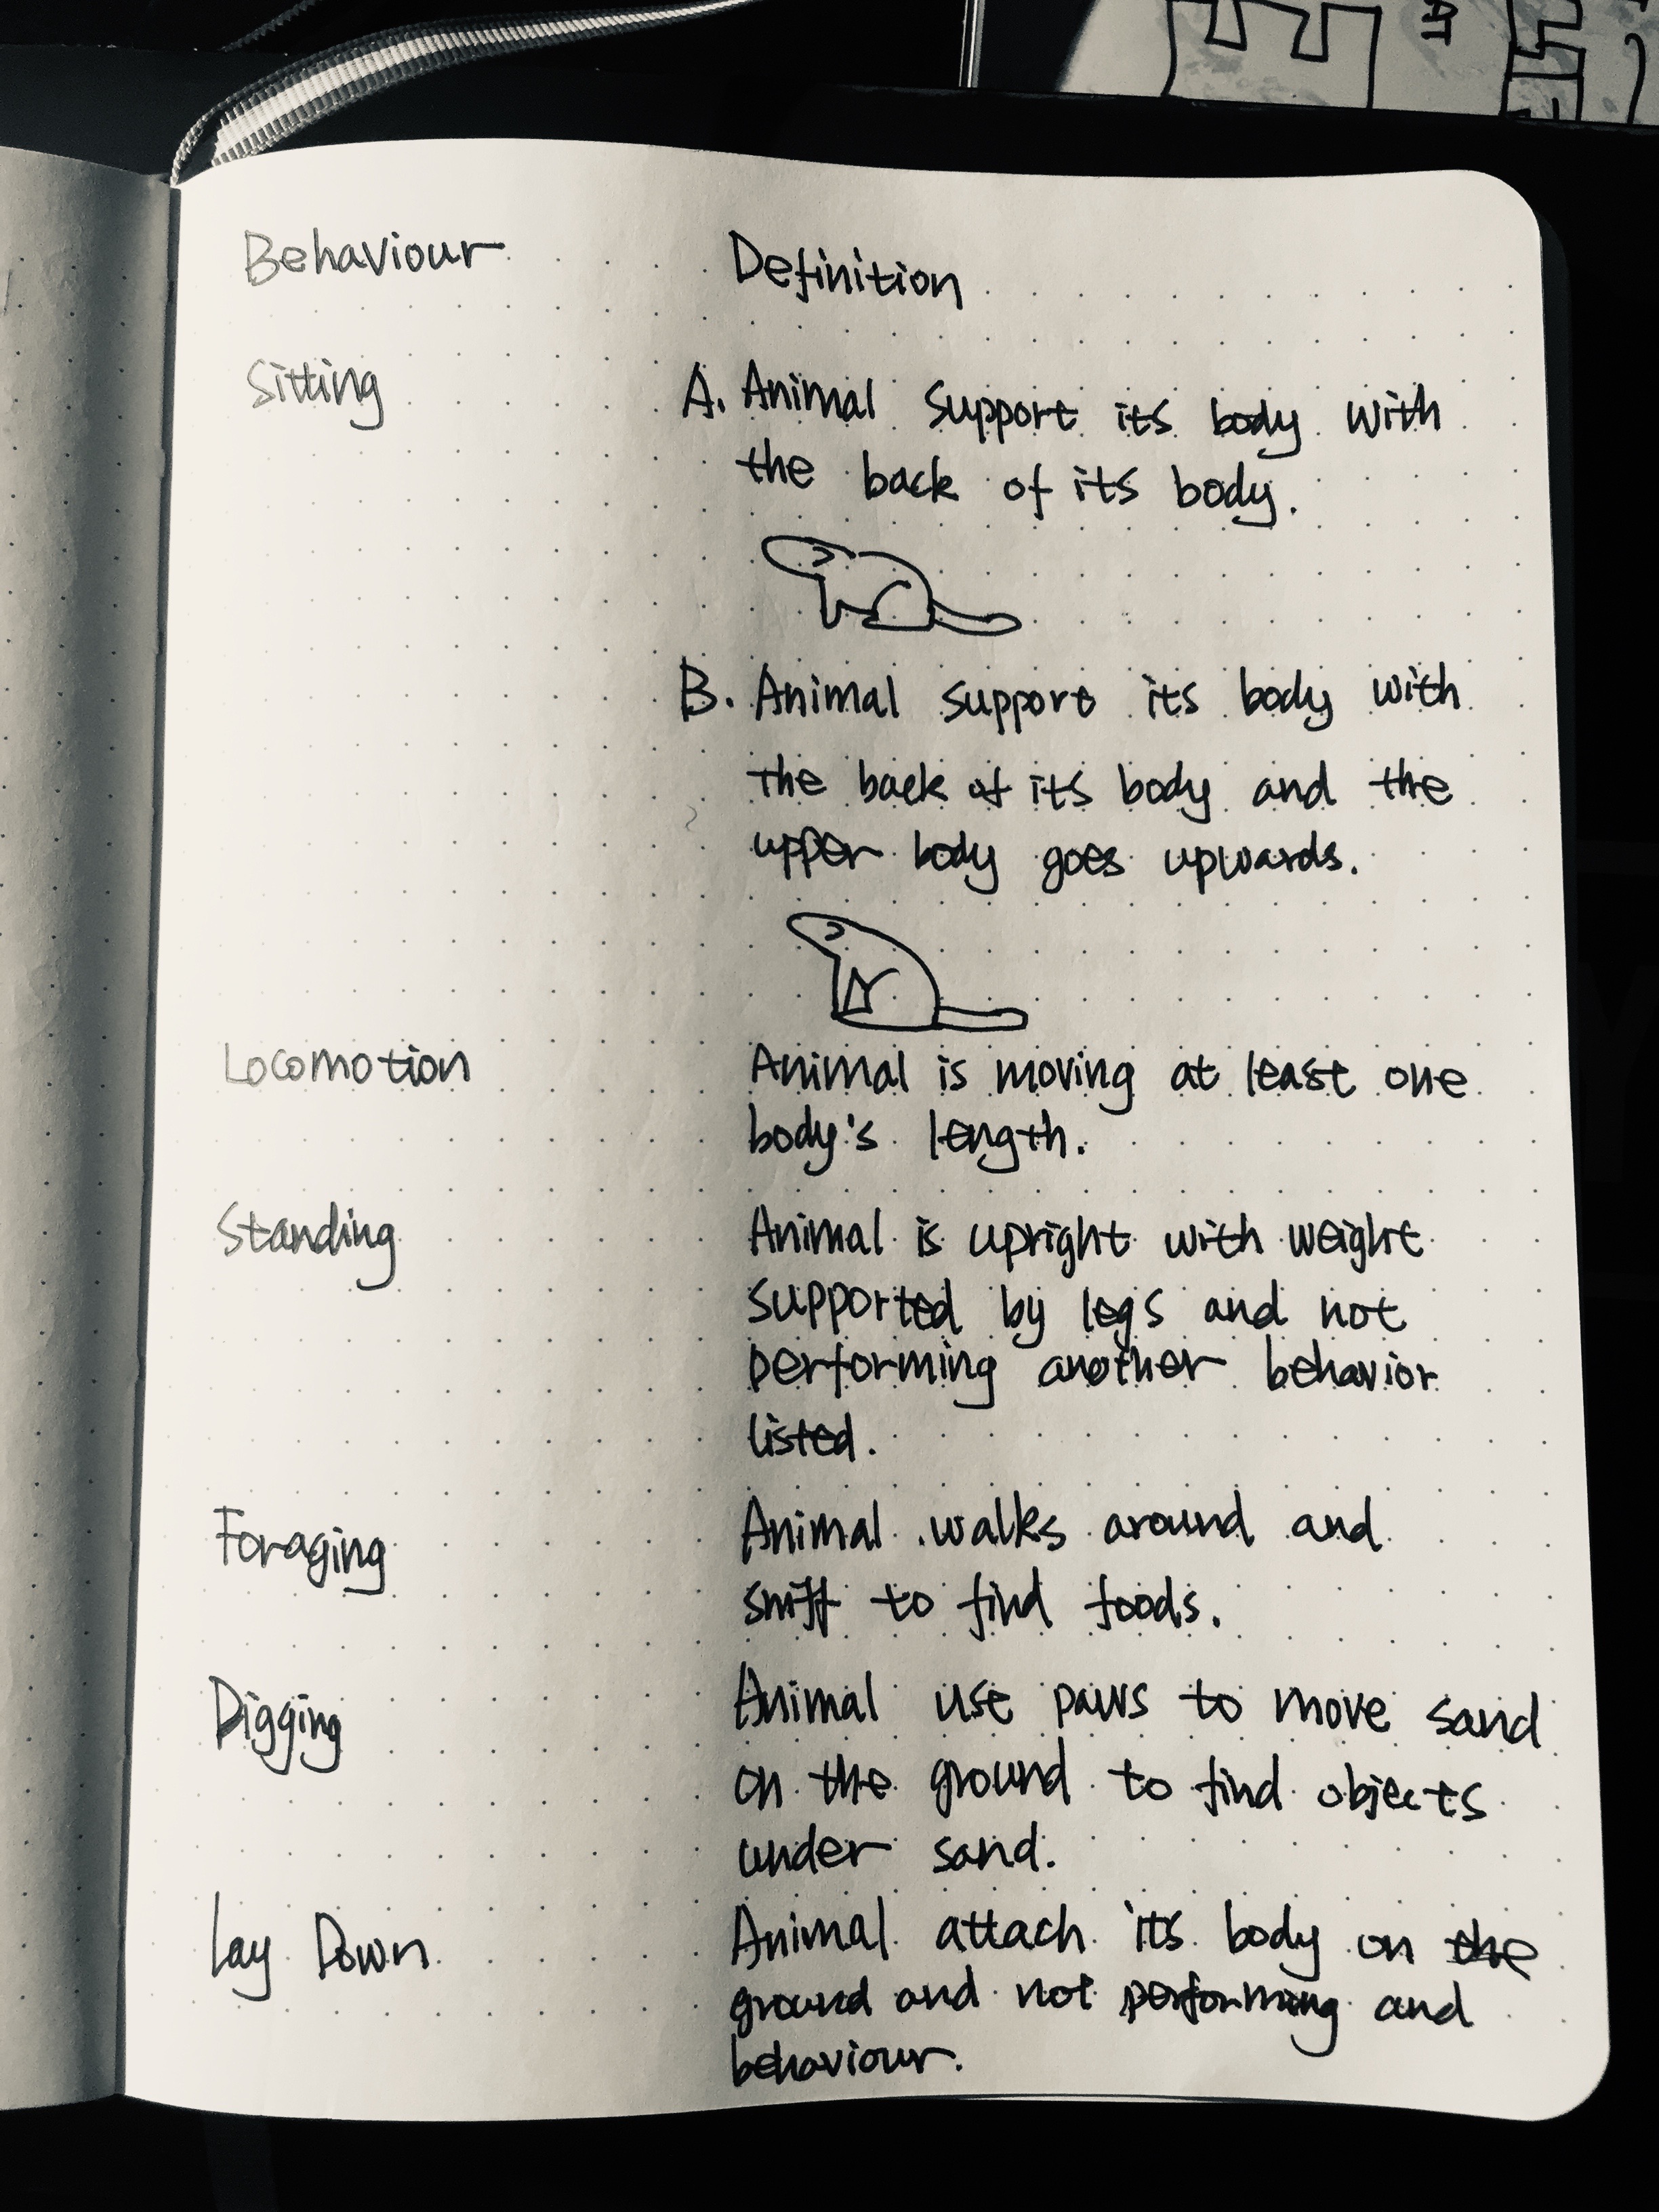 Behaviour Definition
Sitting A. Animal support its body with
the back of its body.
B. Animal support its body with
the back of its body and the
upper body goes upwards.
Locomotion Animal is moving at least one
body's length.
Standing Animal is upright with weight
supported by legs and not
performing another behavior
listed.
Foraging Animal walks around and
sniff to find foods.
Digging Animal use paws to move sand
on the ground to find objects
under sand.
Lay Down Animal attach its body on the
ground and not performing and
behaviour.